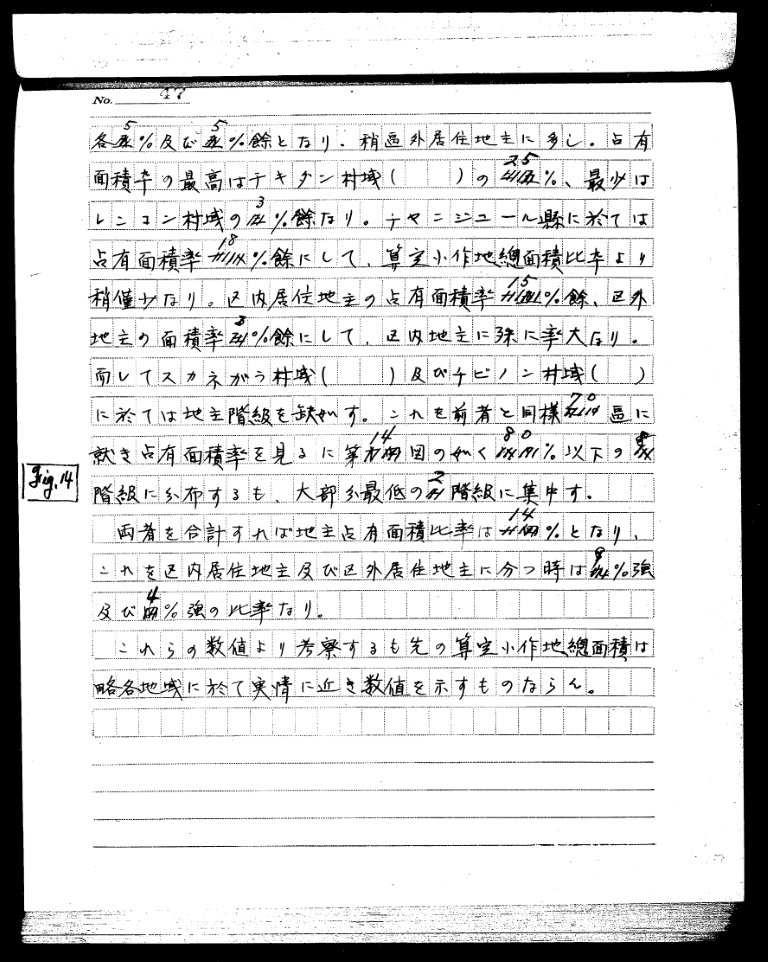 No. 47
各5%及び5%餘となり、稍區外居住地主に多し。占有
面積率の最高はテキダン村域(　　)の25%、最少は
レンコン村域の3%餘なり。チャニジュール縣に於ては
占有面積率18%餘にして、算定小作地總面積比率より
稍僅少なり。区内居住地主の占有面積率15%餘、区外
地主の面積率3%餘にして、区内地主に殊に率大なり。
而してスカネガラ村域(　　)及びチビノン村域(　　)
に於ては地主階級を缺如す。これを前者と同様70區に
就き占有面積率を見るに第14図の如く80%以下の8
Fig. 14
階級に分布するも、大部分最低の2階級に集中す。
両者を合計すれば地主占有面積比率は14%となり、
これを区内居住地主及び区外居住地主に分つ時は9%強
及び4%強の比率なり。
これらの数値より考察するも先の算定小作地總面積は
略各地域に於て実情に近き数値を示すものならん。